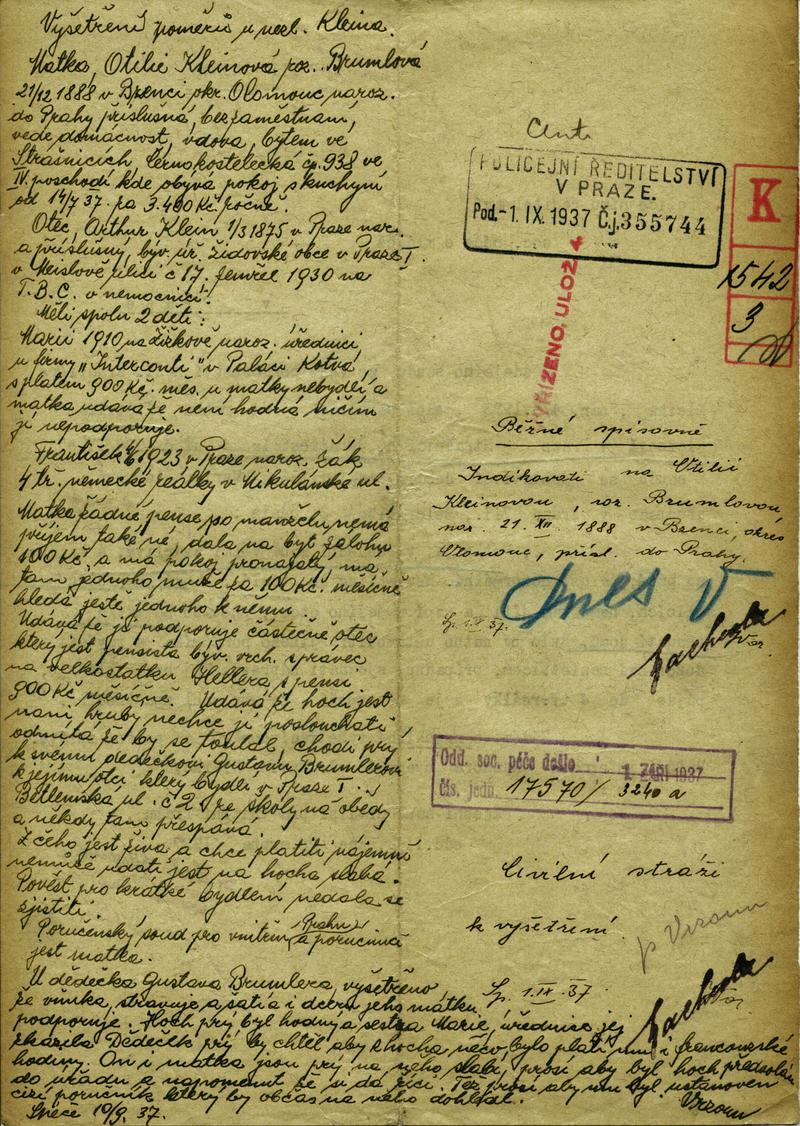 Vyšetření poměrů u nezl. Kleina.
Matka, Otilie Kleinová roz. Brumlová
21/12 1888 v Brenci okr. Olomouc naroz.
do Prahy příslušná, bez zaměstnání,
vede domácnost, vdova, bytem ve
Strašnicích, Černokostelecká čp. 938 ve
IV. poschodí kde obývá pokoj s kuchyní
od 14/7 37. za 3.400 Kč ročně.
Otec, Arthur Klein 1/3 1875 v Praze nar.
a příslušný, býv. úř. židovské obce v Praze I.
v Meislově ulici č 17. zemřel 1930 na
T.B.C. v nemocnici.
Měli spolu 2 děti:
Marii 1910 na Žižkově naroz. úřednici
u firmy "Interconti" v Paláci Kotva,
s platem 900 Kč. měs. u matky nebydlí a
matka udává že není hodná ničím
ji nepodporuje.
František 1923 v Praze naroz. žák
4 tř. německé reálky v Mikulánské ul.
Matka žádné pense po manželu nemá
příjem také ne, dala na byt zálohu
400 Kč. a má pokoj pronajatý, má
tam jednoho muže za 100 Kč. měsíčně
hledá ještě jednoho k němu.
Udává že ji podporuje částečně otec
který jest pensista býv. vrch. správec
na velkostatku Hellera s pensí
900 Kč měsíčně. Udává že hoch jest
na ni hrubý nechce ji poslouchati
odmítá že by se toulal, chodí prý
k svému dědečkovi Gustavu Brumlerovi
k jejímu otci který bydlí v Praze I.
Betlemská ul. č 2 ze školy na obědy
a někdy tam přespává.
Z čeho jest živa a chce platiti nájemné
nemůže udati jest na hocha slabá.
Pověst pro krátké bydlení nedala se
zjistiti.
Poručenský soud pro vnitřní Prahu a poručnicí
jest matka.
U dědečka Gustava Brumlera, vyšetřeno
že vnuka, stravuje a šatí a i dceru jeho matku
podporuje. Hoch prý byl hodný a sestra Marie, úřednice jej
zkazila. Dědeček prý by chtěl aby z hocha něco bylo platí mu i francouzské
hodiny. On i matka jsou prý na něho slabí, prosí aby byl hoch předvolán
do úřadu a napomenut že u dá říci. Též prosí aby mu byl ustanoven
cizí poručník který by občas na něho dohlédl.
10/9. 37. Vrzoun
POLICEJNÍ ŘEDITELSTVÍ
V PRAZE.
Pod. -1. IX. 1937 Č.j. 355744
K
1542
3
VYŘÍZENO, ULOŽ
Běžné spisovně
Indikovati na Otilii
Kleinovou, roz. Brumlovou
nar. 21. XII 1888 v Brenci, okres
Olomouc, přísl. do Prahy.
dnes V
Odd. soc. péče došlo 1. ZÁŘÍ 1937
čís. jedn. 17570/ 3240 a
Civilní stráži
k vyšetření.
p Vrzoun
1. IX. 37.